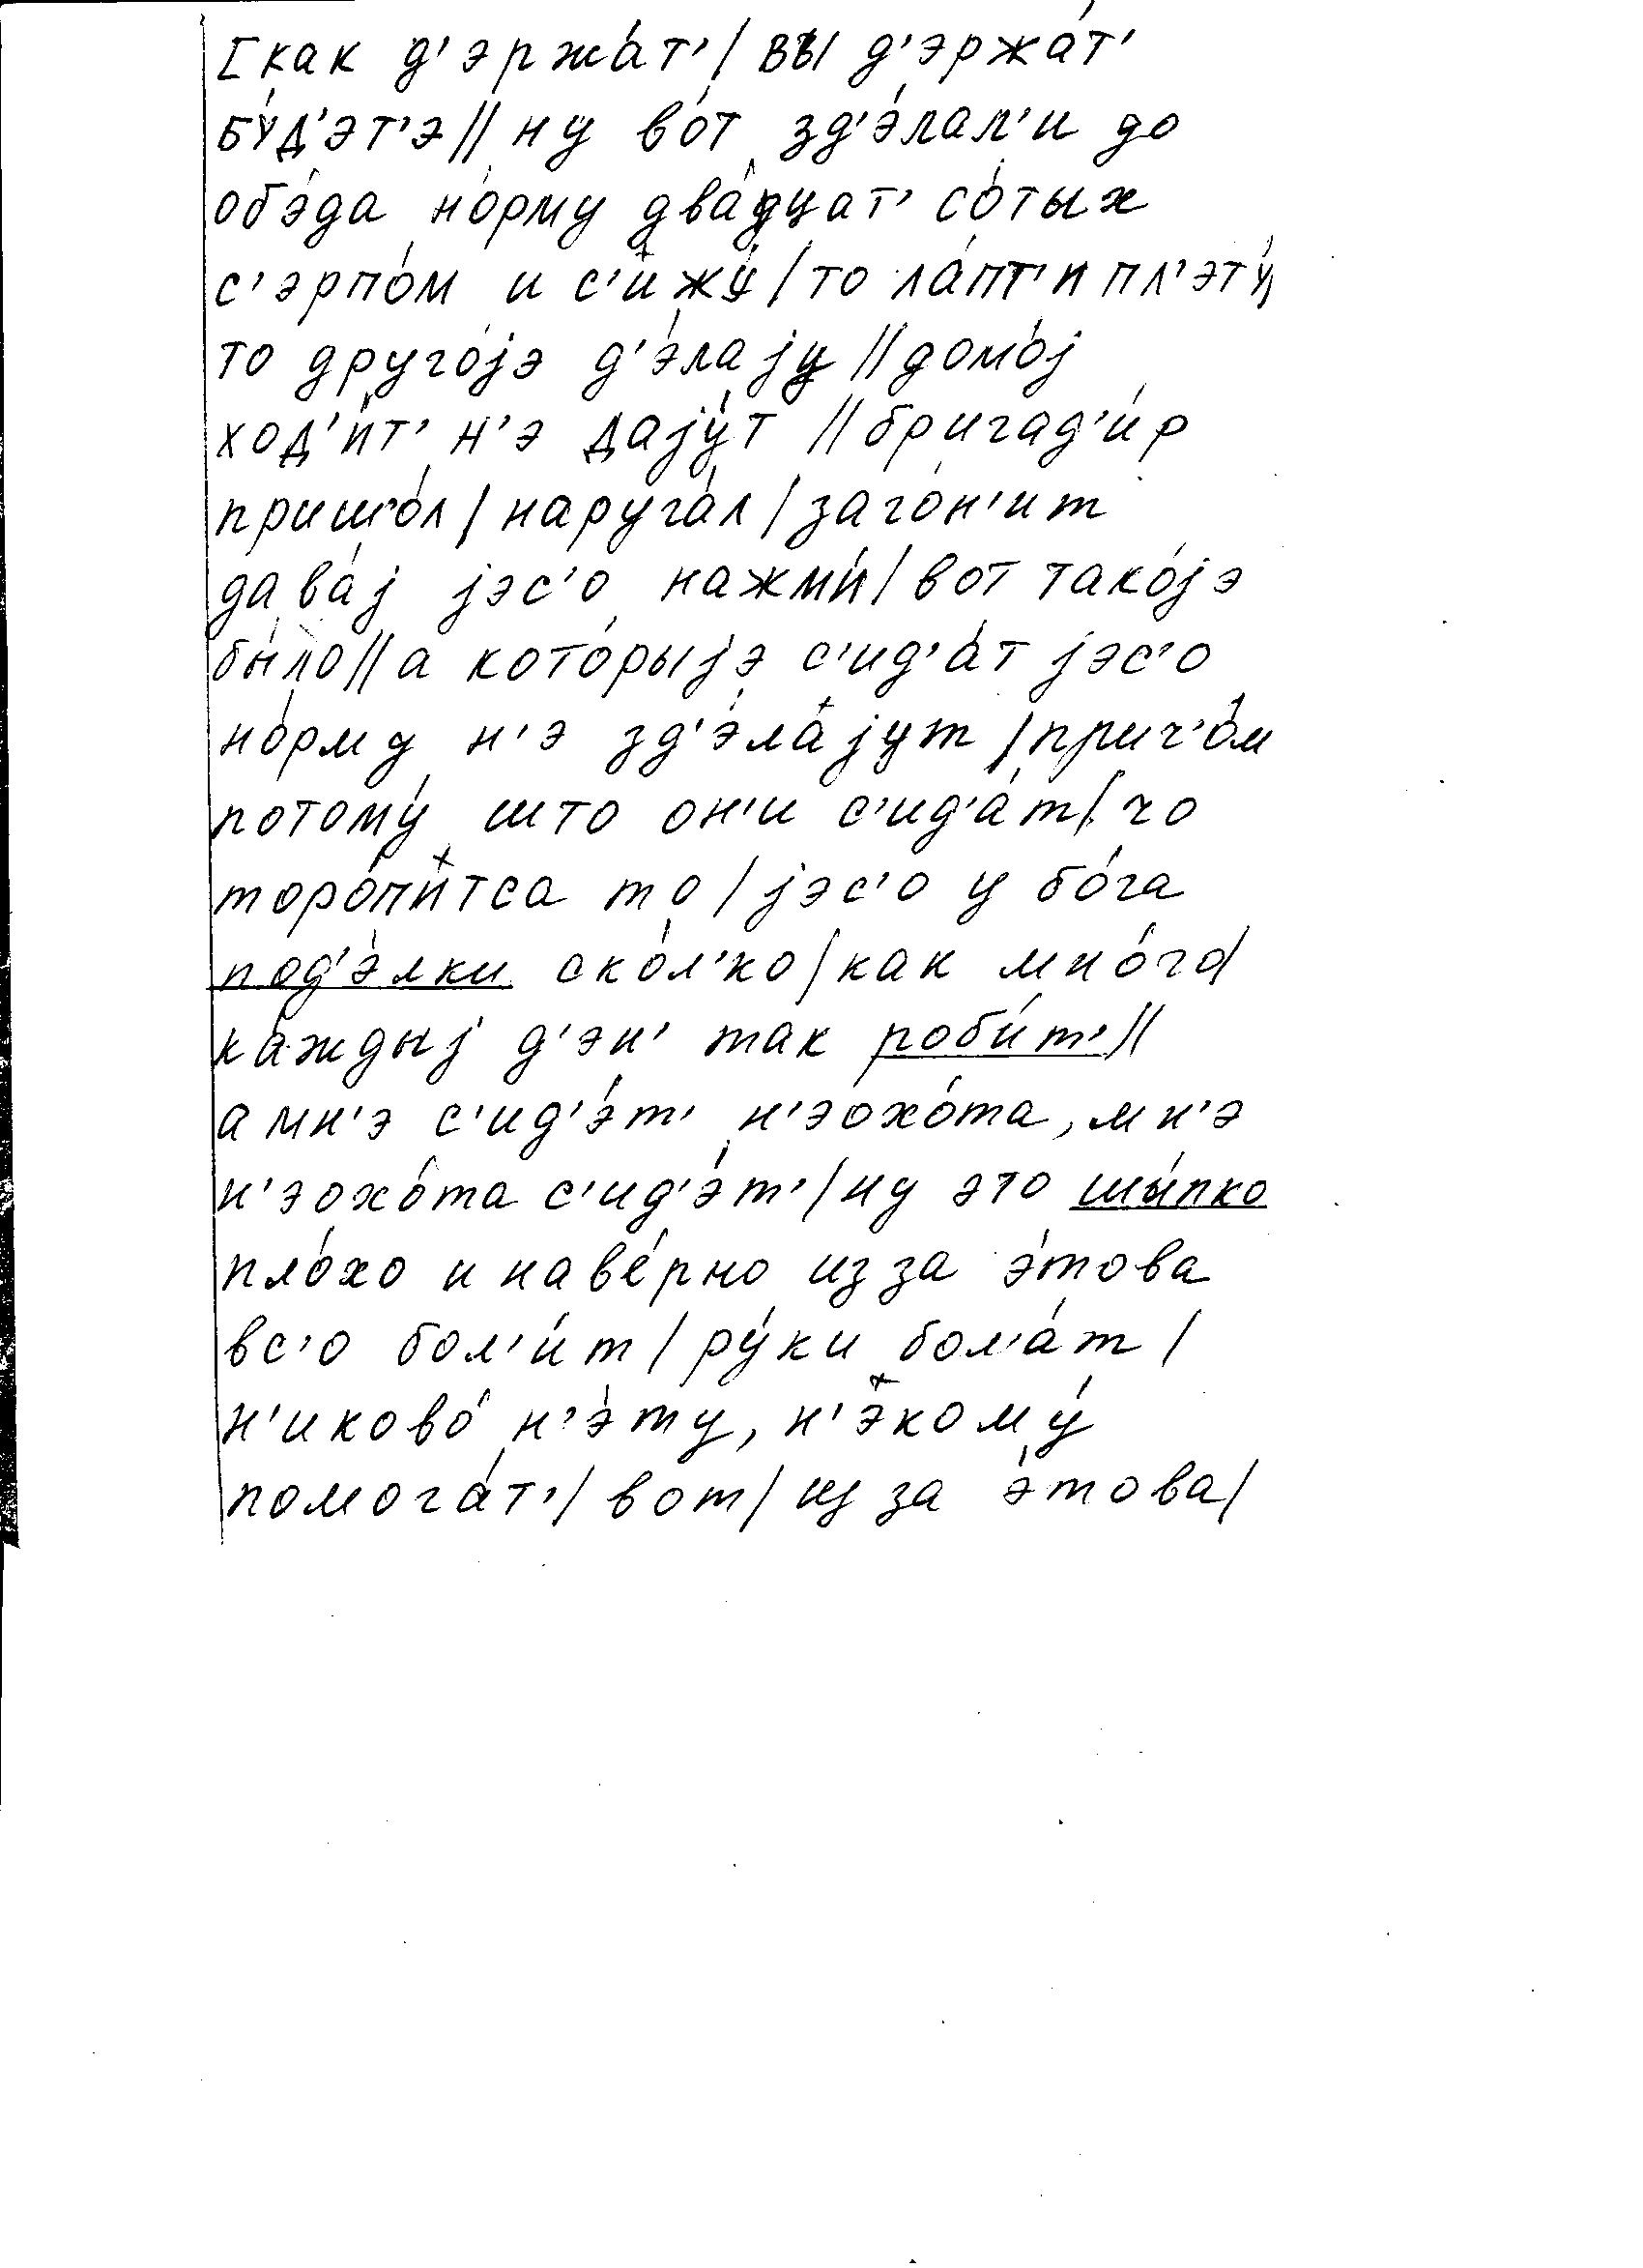 [как д'эржа́т'/ вы д'эржа́т'
бу́д'эт'э// ну во́т зд'э́лал'и до
обэ́да но́рму два́дцат' со́тых
с'эрпо́м и с'и̽жу́/то ла́пт'и пл'эту́,
то друго́jэ д'э́лаjу//домо́j
ход'и́т' н'э даjу́т //бригад'и́р
пришо́л/ наруга́л/ заго́н'ит
дава́j jэс'о нажми́/вот тако́jэ
бы́ло//а кото́рыjэ с'ид'а́т jэс'о
но́рму н'э зд'э́ла̽jут /прич'о́м
потому́ што он'и с'ид'а́т/ чо
торо́пи̽тса то/jэс'о у бо́га
под'э́лки ско́л'ко/как мно́го/
ка́ждыj д'эн' так роби́т'//
а мн'э с'ид'э́т' н'эохо́та, мн'э
н'эохо́та с'ид'э́т'/ну это шы́пко
пло́хо и наве́рно из за э́това
вс'о бол'и́т/ ру́ки бол'а́т/
н'иково́ н'э́ту, н'э̽кому́
помога́т'/ вот/ из за э́това/